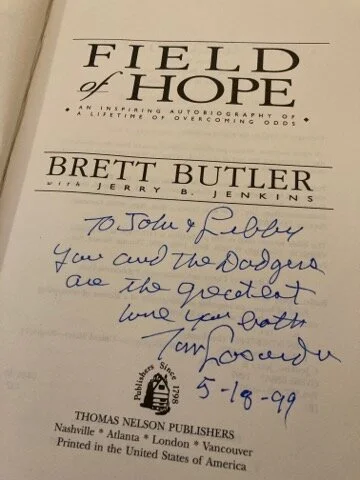 FIELD
of HOPE
AN INSPIRING AUTOBIOGRAPHY OF
A LIFETIME OF OVERCOMING ODDS
BRETT BUTLER
with JERRY B. JENKINS
To John & Libby
You and the Dodgers
are the greatest
love you both
Tom Lasorda
5-18-99
Publishers Since 1798
THOMAS NELSON PUBLISHERS
Nashville * Atlanta * London * Vancouver
Printed in the United States of America